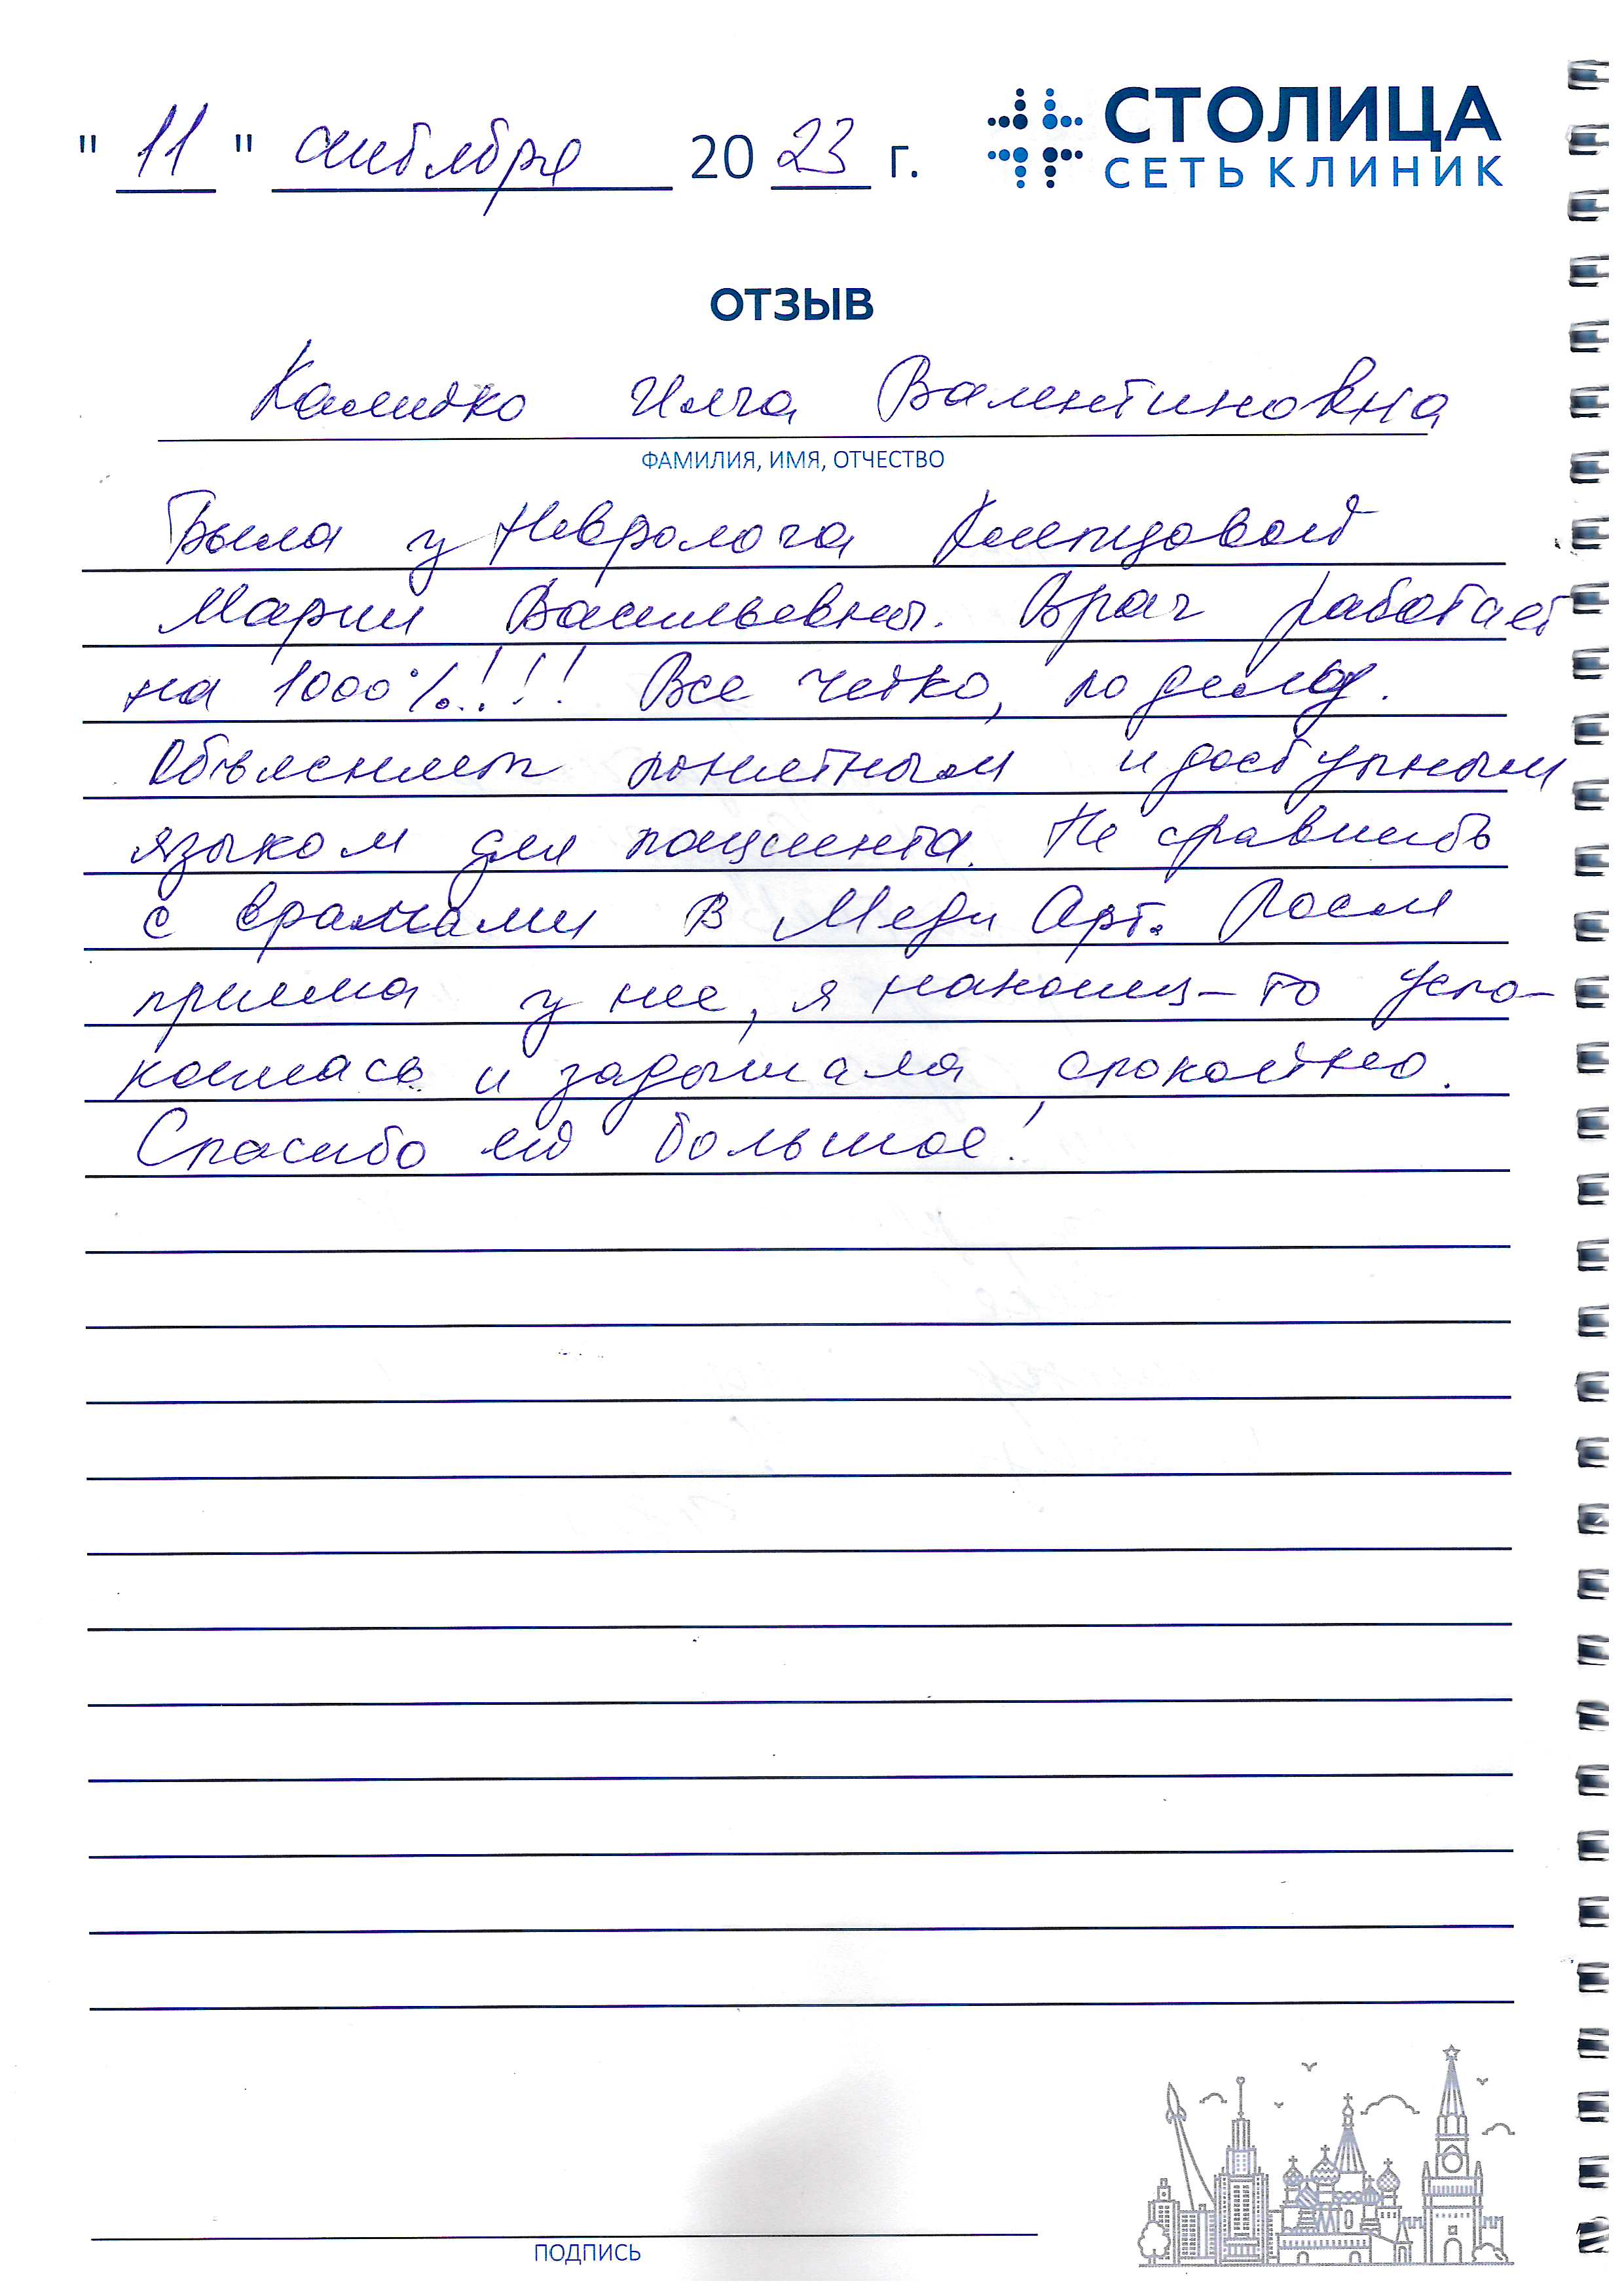 "11" октября 2023 г.
СТОЛИЦА
СЕТЬ КЛИНИК
ОТЗЫВ
Инга Валентиновна
ФАМИЛИЯ, ИМЯ, ОТЧЕСТВО
Была у Невролога
Марии Васильевны. Врач работает
на 1000%!!! Все четко, по делу.
Объясняет понятным и доступным
языком для пациента. Не сравнить
с врачами в Меди Арт. После
приема у нее, я наконец-то успо-
коилась и задышала спокойно.
Спасибо ей большое!
ПОДПИСЬ